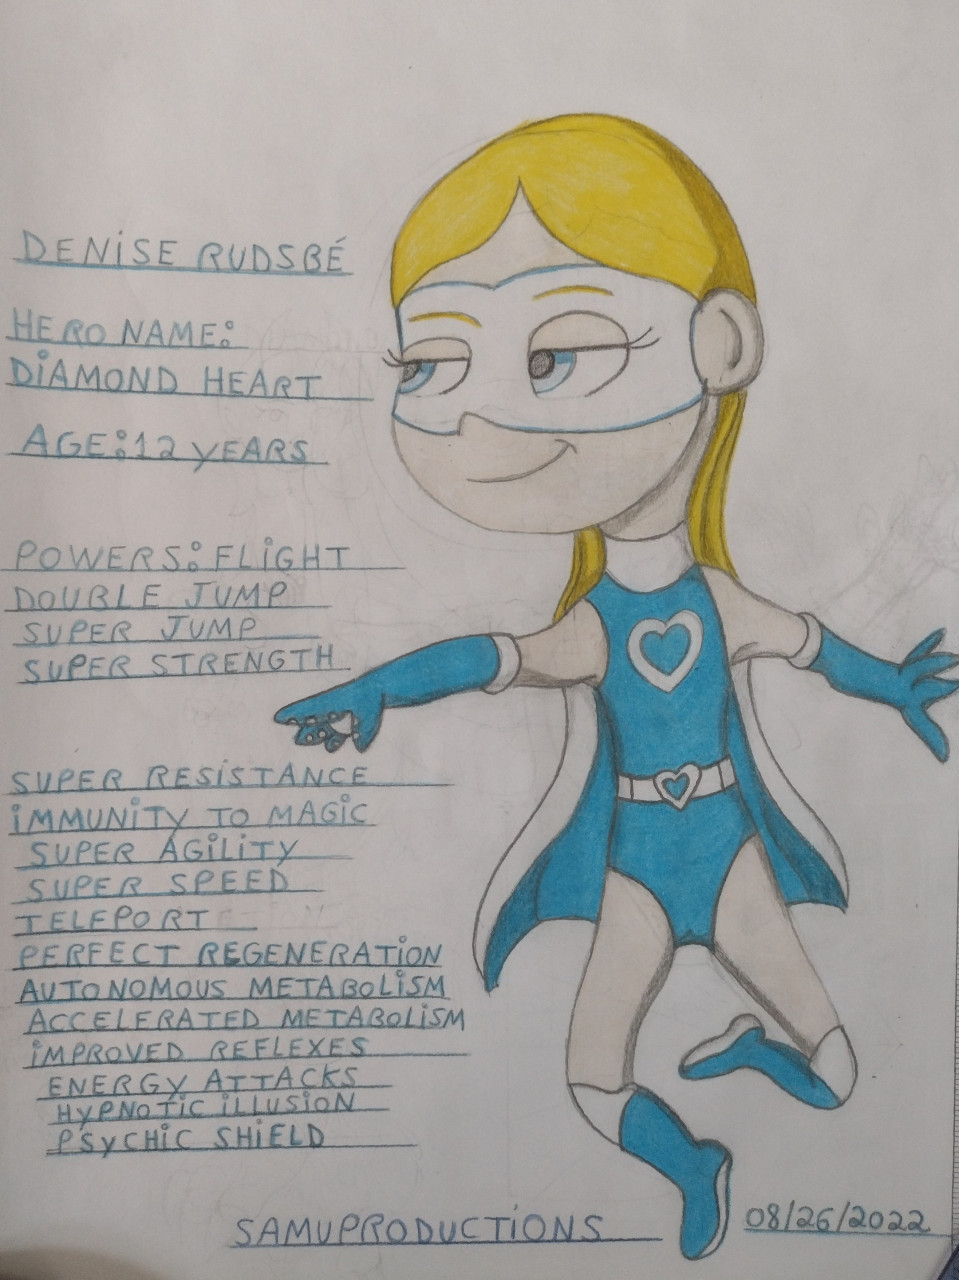 DENiSE RUDSBÉ
HERO NAME:
DiAMOND HEART
AGE:12 YEARS
POWERS:FLiGHT
DOUBLE JUMP
SUPER JUMP
SUPER STRENGTH
SUPER RESiSTANCE
iMMUNiTY TO MAGiC
SUPER AGiLiTY
SUPER SPEED
TELEPORT
PERFECT REGENERATiON
AUTONOMOUS METABOLiSM
ACCELERATED METABOLiSM
iMPROVED REFLEXES
ENERGY ATTACKS
HYPNOTiC iLLUSiON
PSYCHiC SHiELD
SAMUPRODUCTiONS 08/26/2022